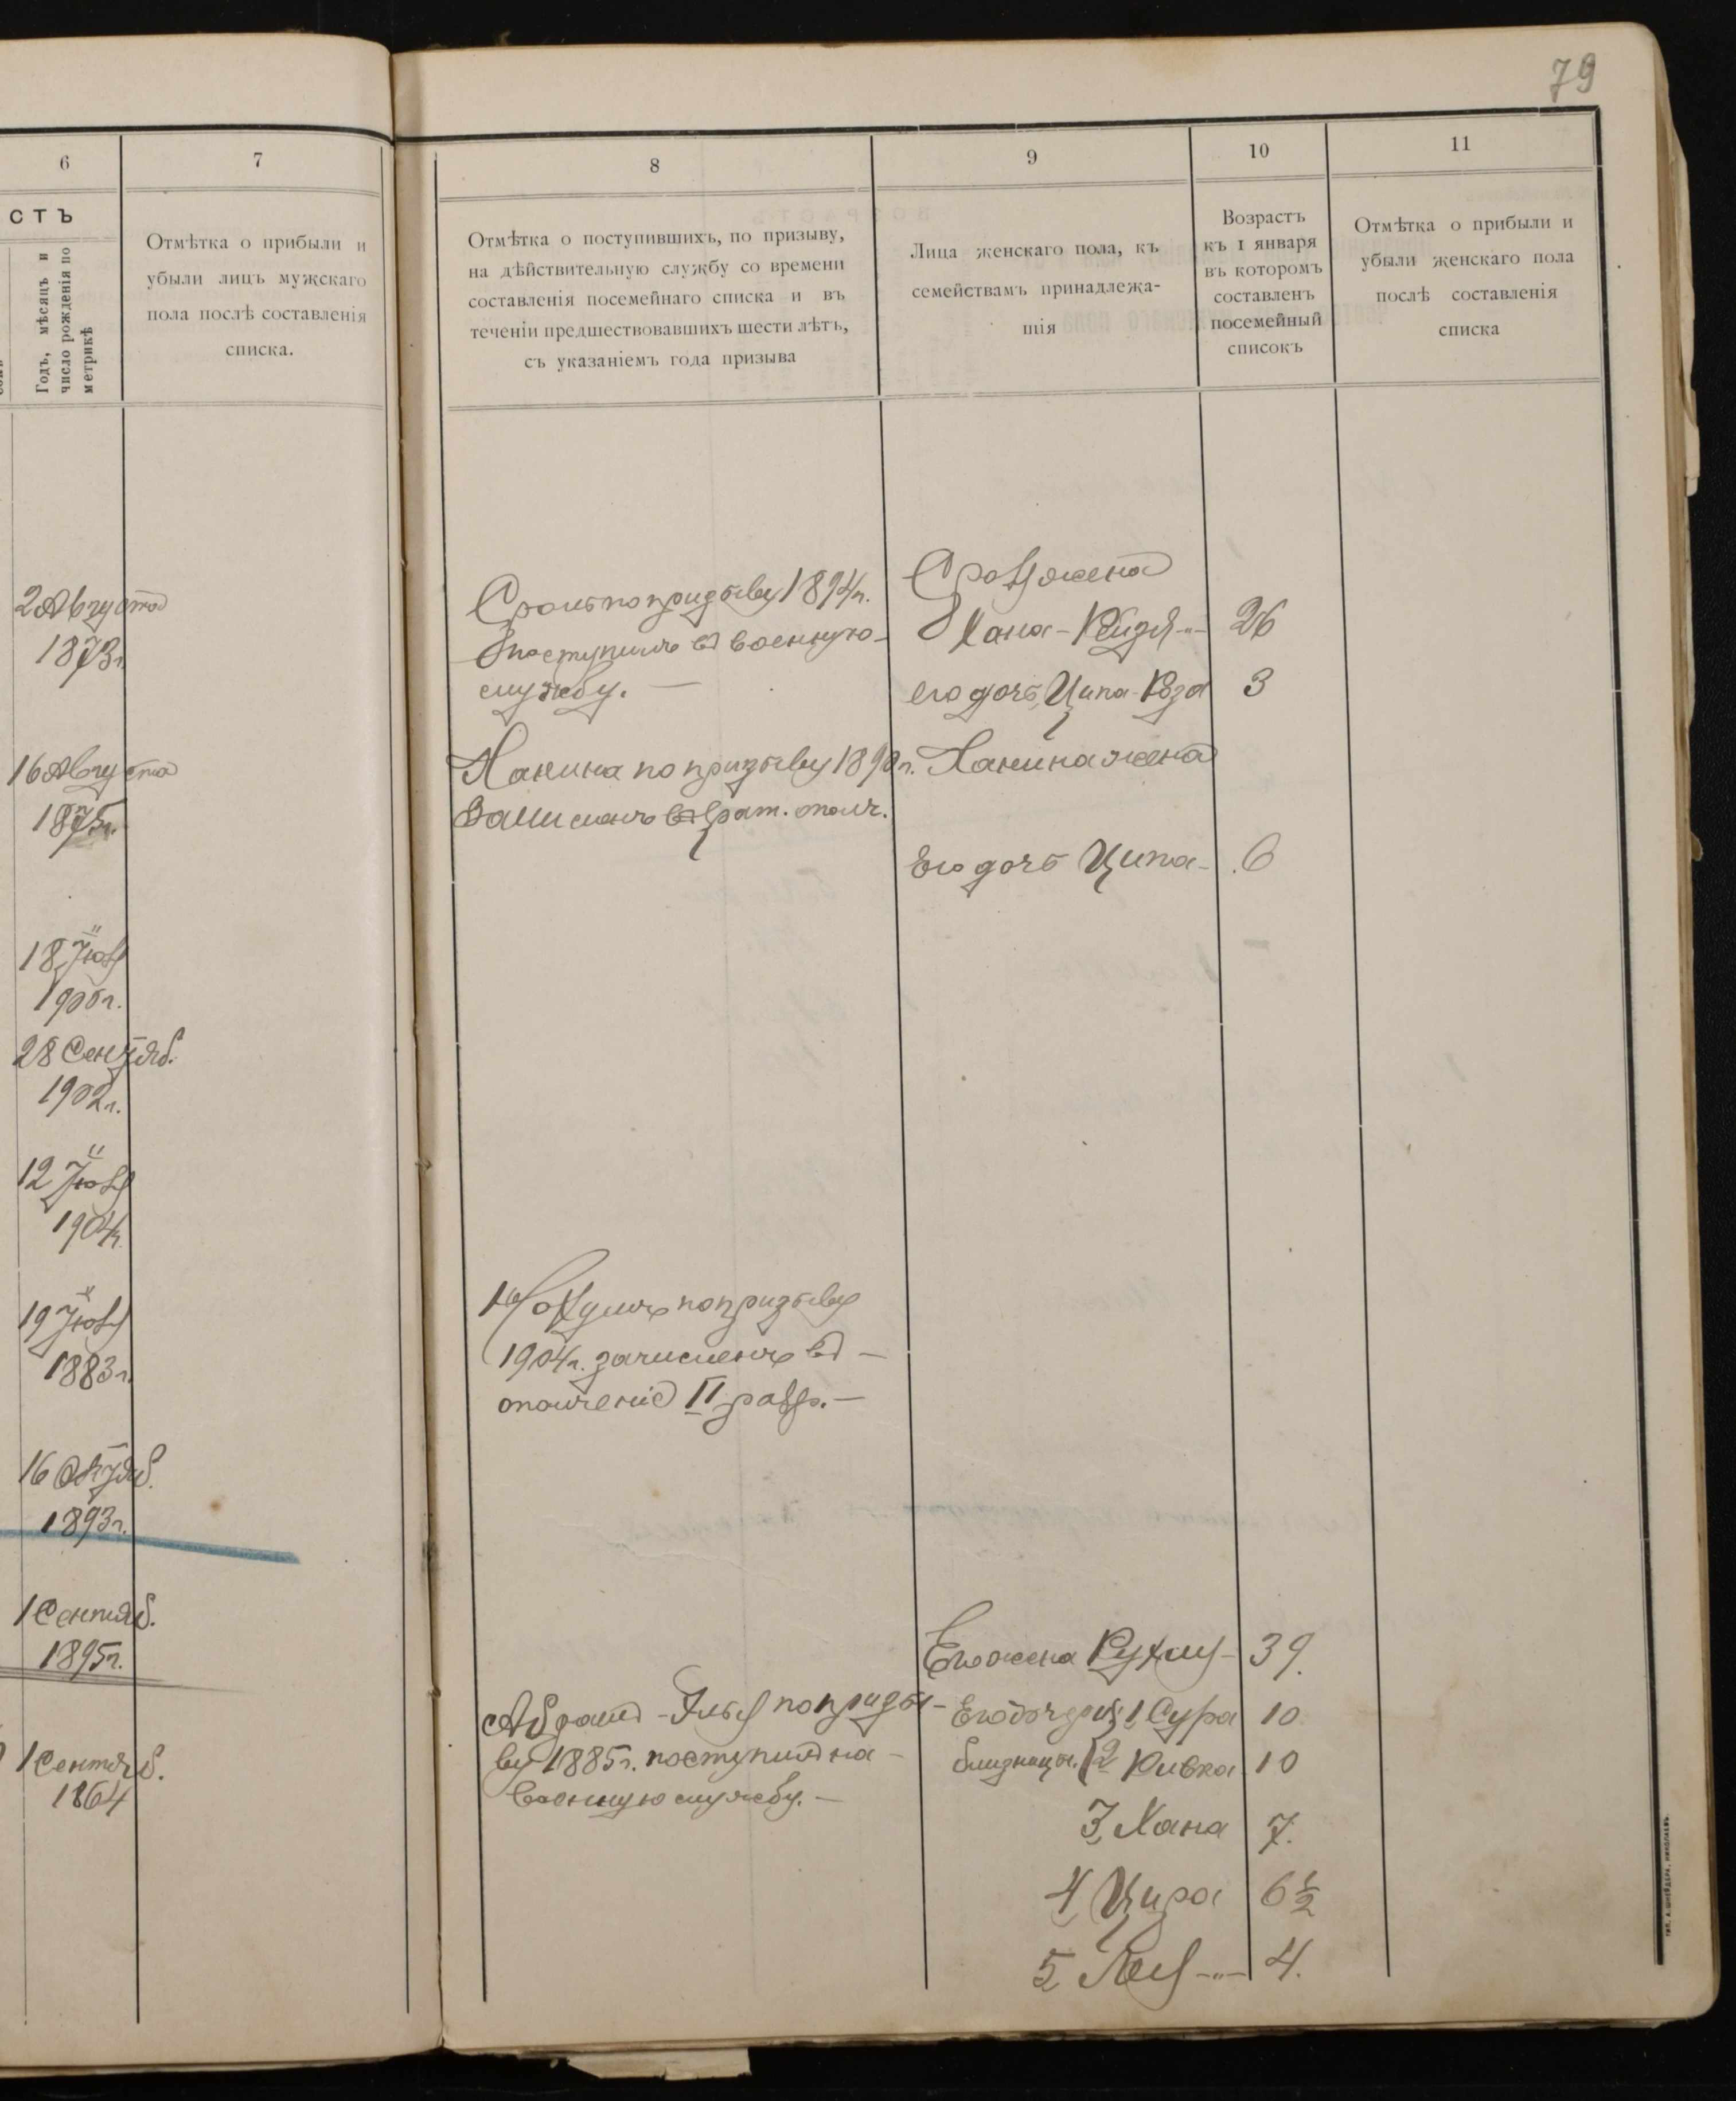 79
6
7
СТЪ
Годъ, мѣсяцъ и
число рожденія по
метрикѣ
Отмѣтка о прибыли и
убыли лицъ мужскаго
пола послѣ составленія
списка.
2 Августа
1873 г.
16 Августа
1875 г.
18 Іюля
1900 г.
28 Сентяб.
1902 г.
12 Іюля
1904 г.
19 Іюля
1883 г.
16 Октяб.
1893 г.
1 Сентяб.
1895 г.
1 Сентяб.
1864
8
9
10
11
Отмѣтка о поступившихъ, по призыву,
на дѣйствительную службу со времени
составленія посемейнаго списка и въ
теченіи предшествовавшихъ шести лѣтъ,
съ указаніемъ года призыва
Лица женскаго пола, къ
семействамъ принадлежа-
щія
Возрастъ
къ 1 января
въ которомъ
составленъ
посемейный
списокъ
Отмѣтка о прибыли и
убыли женскаго пола
послѣ составленія
списка
Сроль по призыву 1894 г.
поступилъ въ военную
службу. —
Сроля жена
Хана-Рейзя -„- 26
его дочь, Ципа-Роза 3
Ханина по призыву 1890 г.
Зачисленъ въ рат. опол.
Ханина жена
Его дочь Ципа - 6
по призыву
1904 г. зачисленъ въ —
ополченіе II разр. —
Его жена Рухля - 39.
Абрамъ-Эля по призы-
ву 1885 г. поступилъ на -
военную службу. —
Его дочери 1, Сура 10
близнецы. 2 Ривка 10
3, Хана 7.
4, Цира 6½
5, Лея -„- 4.
ТИП. А. ШНЕЙДЕРА, НИКОЛАЕВЪ